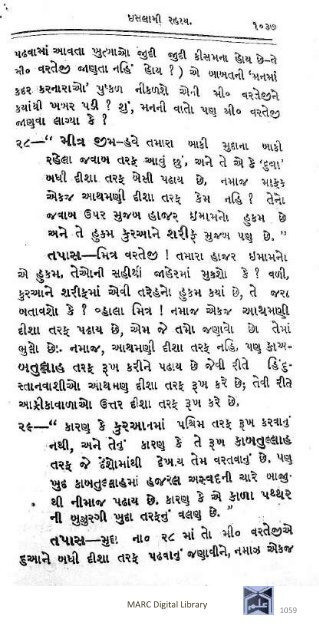 ઇસલામી રહસ્ય.
૧૦૩૭
પઢવામાં આવતા ખુતબાઓ જુદી જુદી કીસમના હોય છે—તે
મી૦ વરતેજી જાણતા નહિં હોય? ) એ બાબતની 'મનમાં
કદર કરનારાઓ' પુષ્કળ નીકળશે એની મી૦ વરતેજીને
કયાંથી ખબર પડી? શું, મનની વાતો પણ મી૦ વરતેજી
જાણવા લાગ્યા કે ?
૨૮—“ મીત્ર જીમ—હવે તમારા બાકી સુદાના બાકી
રહેલા જવાબ તરફ આવું છું, અને તે એ કે 'દુવા'
બધી દીશા તરફ બેસી પઢાય છે, નમાજ માફક
એકજ આથમણી દીશા તરફ કેમ નહિં ? તેનો
જવાબ ઉપર મુજબ હાજર ઇમામનો હુકમ છે
અને તે હુકમ કુરઆને શરીફ મુજબ પણ છે. ”
તપાસ—મિત્ર વરતેજી ! તમારા હાજર ઇમામનો
એ હુકમ, તેઓની સહીથી જાહેરમાં મુકશો કે ? વળી,
કુરઆને શરીફમાં એવી તરેહનો હુકમ કયાં છે, તે જરા
બતાવશો કે ? વ્હાલા મિત્ર ! નમાજ એકજ આથમણી
દીશા તરફ પઢાય છે, એમ જે તમો જણાવો છો તેમાં
ભુલો છો:- નમાજ, આથમણી દીશા તરફ નહિં, પણ કાઅ-
બતુલ્લાહ તરફ રૂખ કરીને પઢાય છે જેવી રીતે હિંદુ-
સ્તાનવાશીઓ આથમણ દીશા તરફ રૂખ કરે છે; તેવી રીતે
આફ્રીકાવાળાઓ ઉત્તર દીશા તરફ રૂખ કરે છે.
૨૯—“ કારણ કે કુરઆનમાં પશ્ચિમ તરફ રૂખ કરવાનું
નથી, અને તેનું કારણ કે તે રૂખ કાબતુલ્લાહ
તરફ જે દેશોમાંથી દેખાય તેમ વરતવાનું છે. પણ
ખુદ કાબતુલ્લાહમાં હજરલ અસ્વદની ચારે બાજુ-
થી નીમાજ પઢાય છે. કારણ કે એ કાળા પથ્થર
ની બુઝુરગી ખુદા તરફનું વલણ છે. ”
તપાસ—સુદા ના૦ ૨૮ માં તો મી૦ વરતેજીએ
દુઆને બધી દીશા તરફ પઢવાનું જણાવીને, નમાઝ એકજ
MARC Digital Library
1059